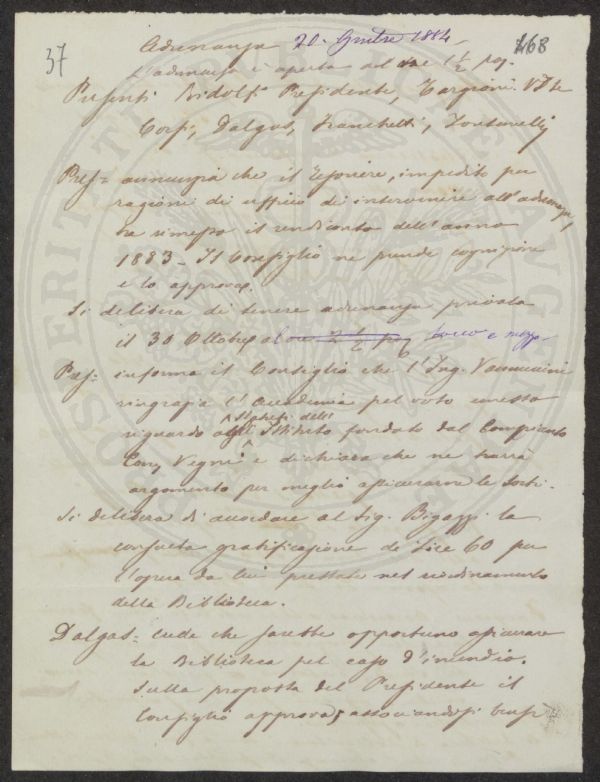 37
168
Adunanza 20. Gmbre 1884
L'adunanza è aperta ad ore 1 1/2 pog.
Presenti Ridolfi Presidente, Targioni V. Pte
Corsi, Dalgas, Franchetti, Fontanelli
Pres= annunzia che il Tesoriere, impedito per
ragioni di ufficio di intervenire all'adunanza,
ha rimesso il rendiconto dell'anno
1883 - Il Consiglio ne prende cognizione
e lo approva.
Si delibera di tenere adunanza privata
il 30 Ottobre al tocco e mezzo
Pres= informa il Consiglio che l'Ing. Vannuccini
ringrazia l'Accademia pel voto emesso
riguardo agli Istituto fondato dal Compianto
Conz Vegni e dichiara che ne trarrà
argomento per meglio assicurarne le sorti.
Si delibera di accordare al Sig. Bigazzi la
consueta gratificazione di Lire 60 per
l'opera da lui prestata nel riordinamento
della Biblioteca.
Dalgas= crede che sarebbe opportuno assicurare
la Biblioteca pel caso d'incendio.
Sulla proposta del Presidente il
Consiglio approva, associandosi
PROSPERITATI PUBLICAE AUGENDAE